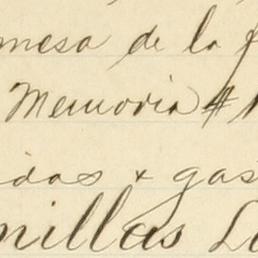 mesa de la f
Memoria #
idas & gas
millas La